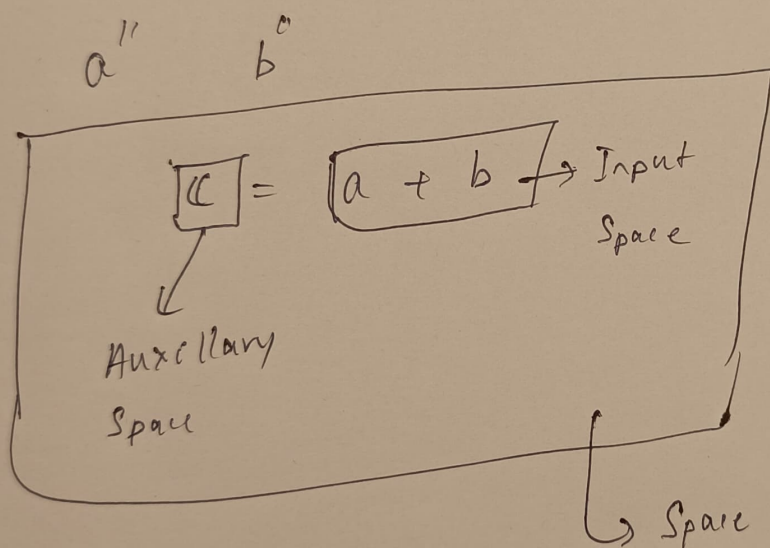 a" b"
c = a + b → Input
Space
Auxillary
Space
Space